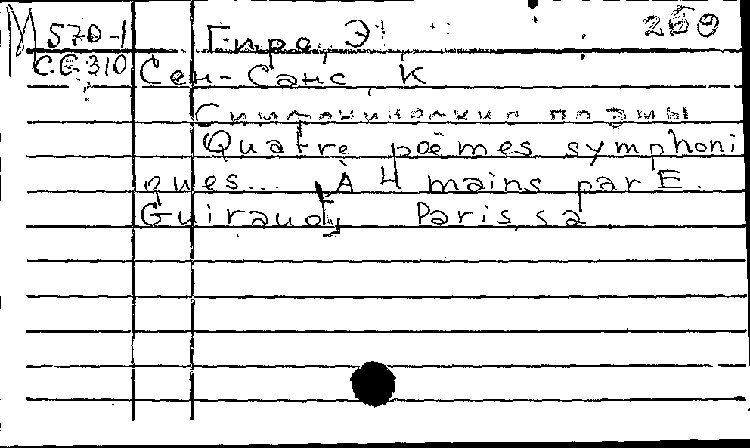 М 570-1 Гиро, Э 260
С.С.310 Сен-Санс, К
Симфонические поэмы
Quatre poèmes symphoni
ques... À 4 mains par E.
Guiraud, Paris, s a